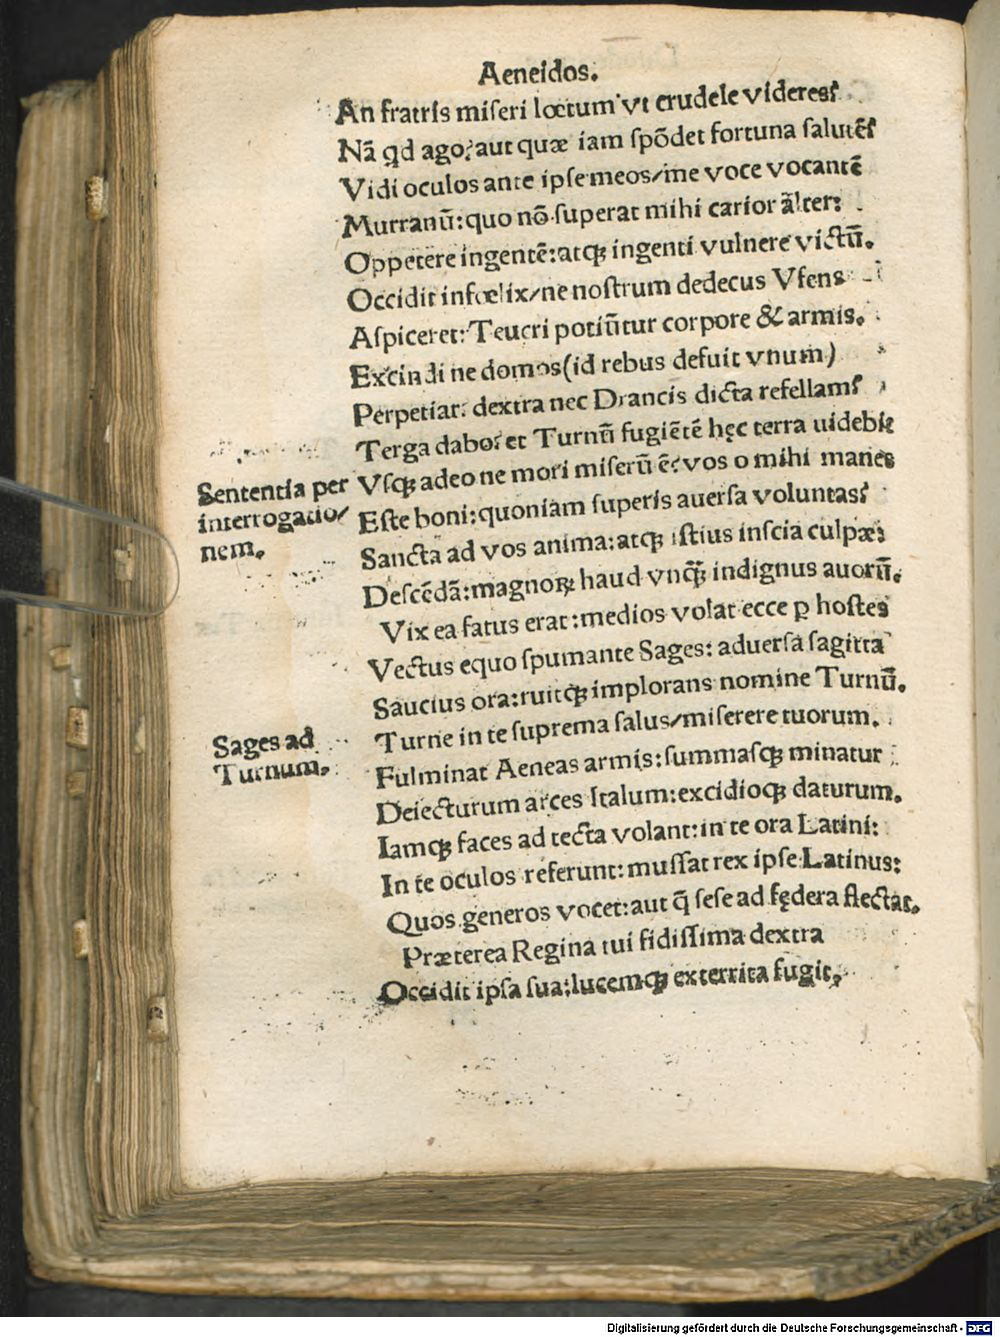 Aeneidos.
An fratris miſeri lœtum vt crudele videres?
Nā qd ago? aut quæ iam ſpōdet fortuna ſalutē?
Vidi oculos ante ipſe meos/me voce vocantē
Murranū: quo nō ſuperat mihi carior ālter:
Oppetere ingentē: atq; ingenti vulnere victū.
Occidit infœlix/ne noſtrum dedecus Vfens
Aſpiceret: Teucri potiūtur corpore & armis.
Excindi ne domos (id rebus defuit vnum)
Perpetiar: dextra nec Drancis dicta refellam?
Terga dabo? et Turnū fugiētē hęc terra uidebit
Sententia per
interrogatio/
nem.
Vſq; adeo ne mori miſerū ē? vos o mihi manes
Eſte boni: quoniam ſuperis auerſa voluntas?
Sancta ad vos anima: atq; iſtius inſcia culpæ:
Deſcēdā: magnoꝝ haud vnq̄ indignus auorū.
Vix ea fatus erat: medios volat ecce ꝑ hoſtes
Vectus equo ſpumante Sages: aduerſa ſagitta
Saucius ora: ruitq; implorans nomine Turnū.
Sages ad
Turnum.
Turne in te ſuprema ſalus/miſerere tuorum.
Fulminat Aeneas armis: ſummaſq; minatur
Deiecturum arces Italum: excidioq; daturum.
Iamq; faces ad tecta volant: in te ora Latini:
In te oculos referunt: muſſat rex ipſe Latinus:
Quos generos vocet: aut q̄ ſeſe ad fędera flectat.
Præterea Regina tui fidiſſima dextra
Occidit ipſa ſua: lucemq; exterrita fugit,
Digitalisierung gefördert durch die Deutsche Forschungsgemeinschaft - DFG